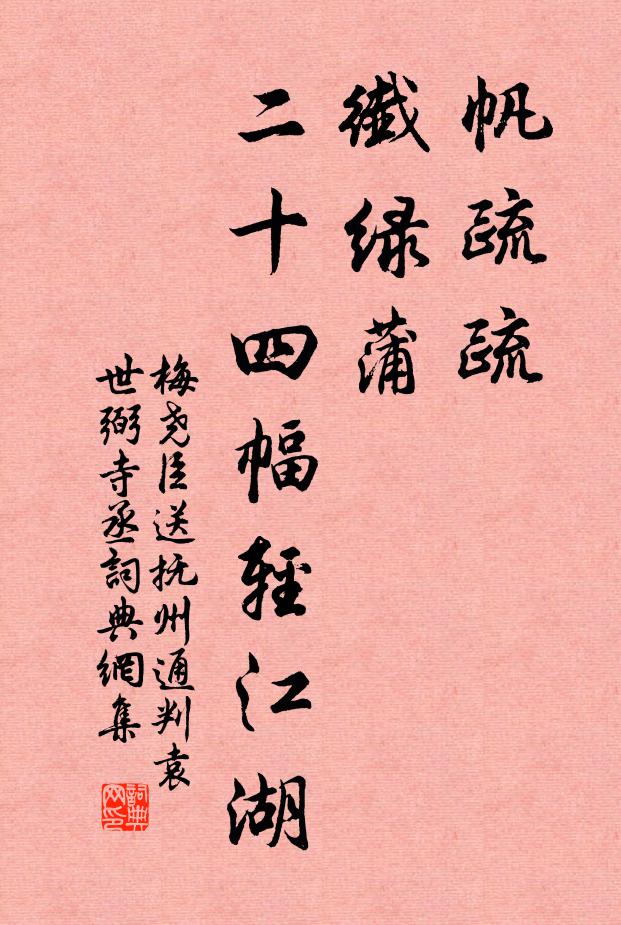 帆疏疏
織绿蒲
二十四幅輕江湖
梅尧臣送抚州通判袁
世弼寺丞詞典網集
詞典网印